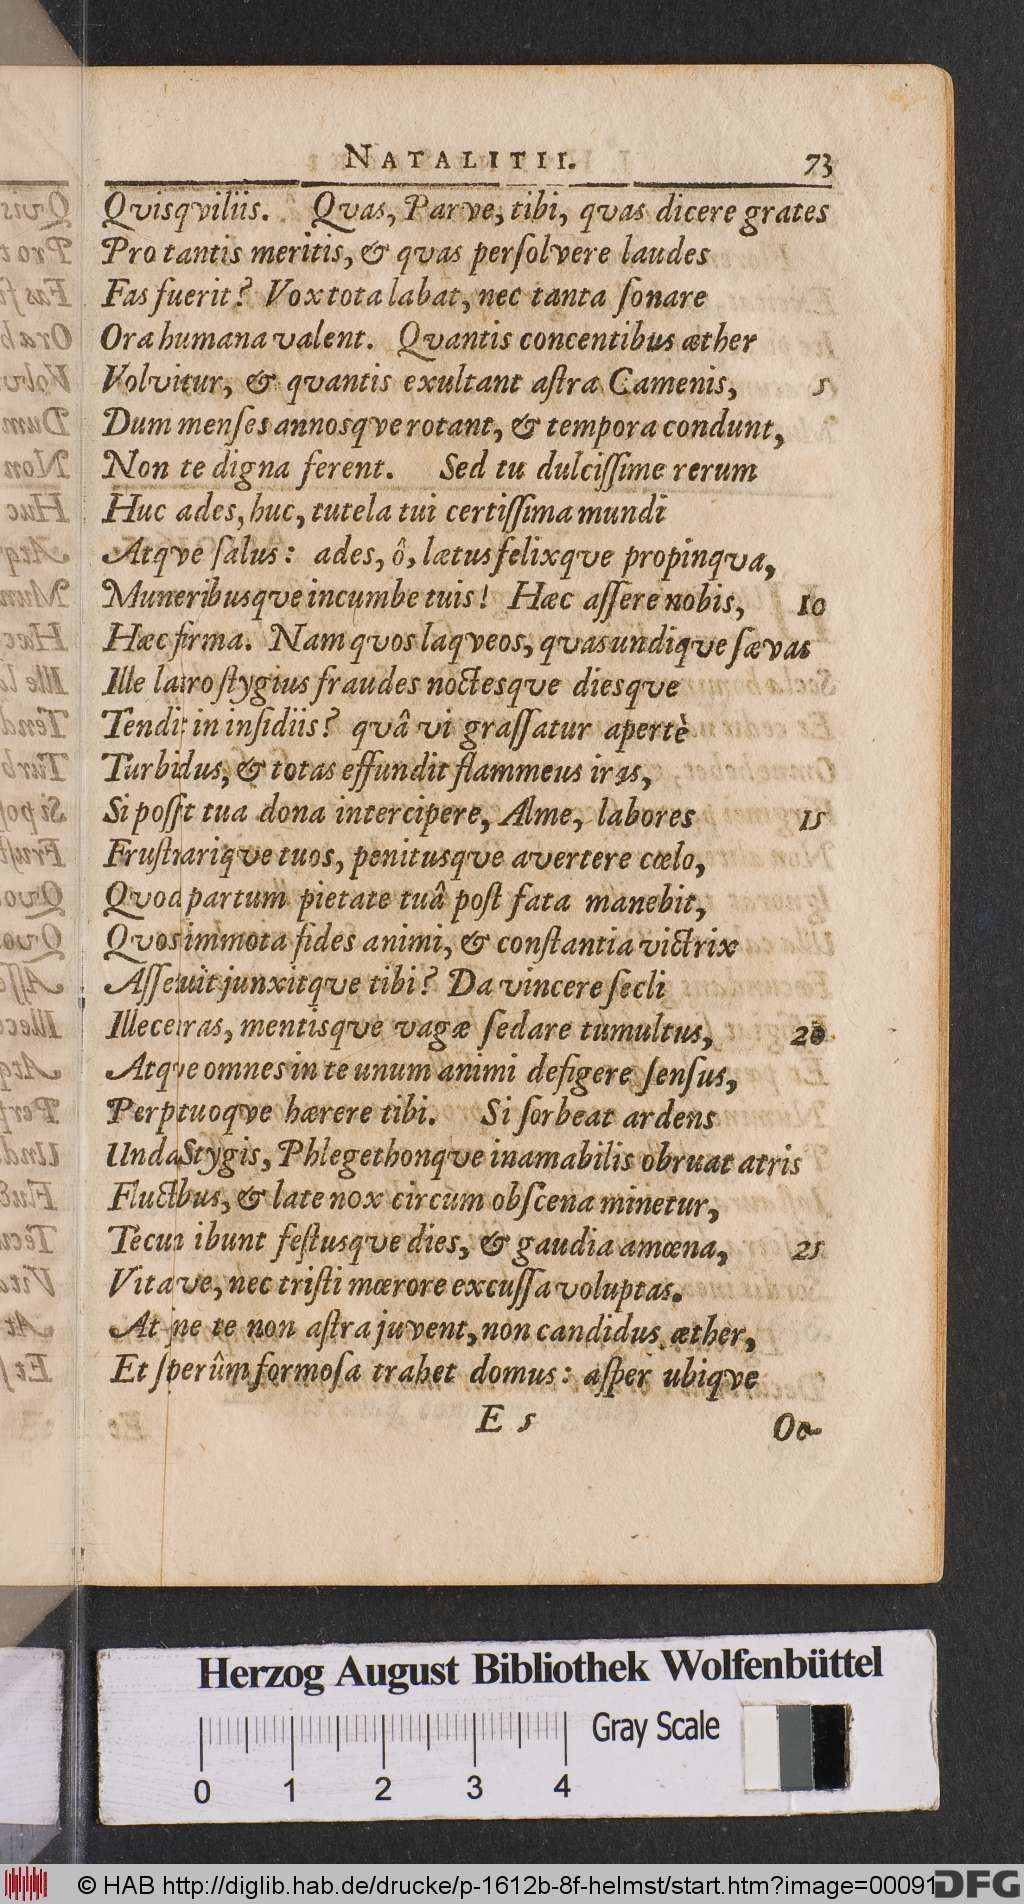 NATALITII. 73
Qvisqviliis. Qvas, Parve, tibi, qvas dicere grates
Pro tantis meritis, & qvas persolvere laudes
Fas fuerit? Vox tota labat, nec tanta sonare
Ora humana valent. Qvantis concentibus æther
Volvitur, & qvantis exultant astra Camenis, 5
Dum menses annosqve rotant, & tempora condunt,
Non te digna ferent. Sed tu dulcissime rerum
Huc ades, huc, tutela tui certissima mundi
Atqve salus: ades, ô, lætus felixqve propinqva,
Muneribusqve incumbe tuis! Hæc assere nobis, 10
Hæc firma. Nam qvos laqveos, qvas undiqve sævas
Ille latro stygius fraudes noctesqve diesqve
Tendit in insidiis? qvâ vi grassatur apertè
Turbidus, & totas effundit flammeus iras,
Si possit tua dona intercipere, Alme, labores 15
Frustrariqve tuos, penitusqve avertere cœlo,
Qvod partum pietate tuâ post fata manebit,
Qvos immota fides animi, & constantia victrix
Asseruit junxitqve tibi? Da vincere secli
Illecebras, mentisqve vagæ sedare tumultus, 20
Atqve omnes in te unum animi defigere sensus,
Perpetuoqve hærere tibi. Si sorbeat ardens
Unda Stygis, Phlegethonqve inamabilis obruat atris
Fluctibus, & late nox circum obscena minetur,
Tecum ibunt festusqve dies, & gaudia amœna, 25
Vitave, nec tristi mœrore excussa voluptas.
At sine te non astra juvent, non candidus æther,
Et sperûm formosa trahet domus: asper ubiqve
E 5 Oc-
Herzog August Bibliothek Wolfenbüttel
Gray Scale
0 1 2 3 4
© HAB http://diglib.hab.de/drucke/p-1612b-8f-helmst/start.htm?image=00091
DFG